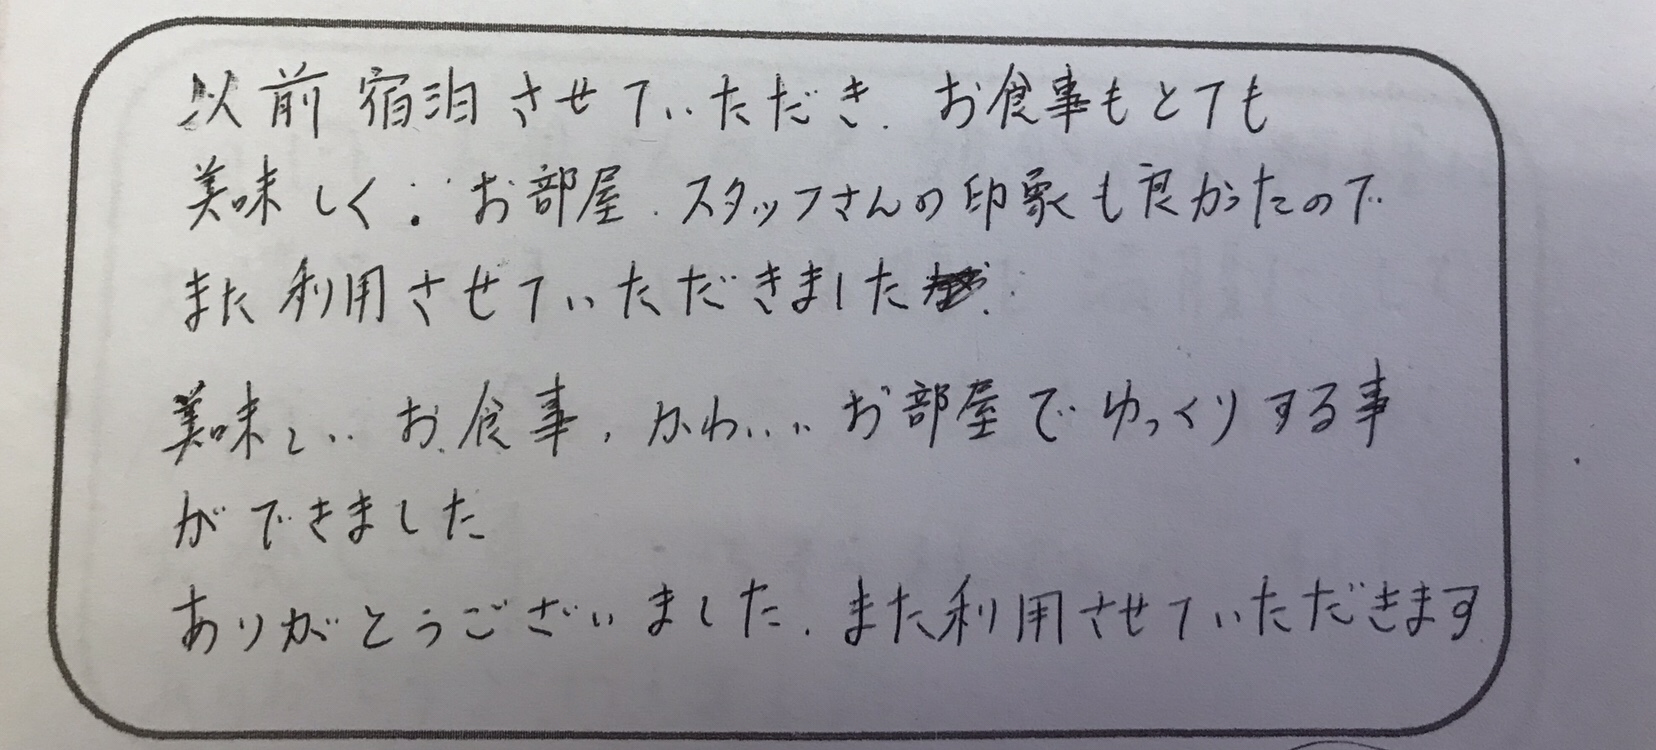 以前宿泊させていただき、お食事もとても
美味しく、お部屋、スタッフさんの印象も良かったので
また利用させていただきました
美味しいお食事、かわいいお部屋でゆっくりする事
ができました
ありがとうございました。また利用させていただきます